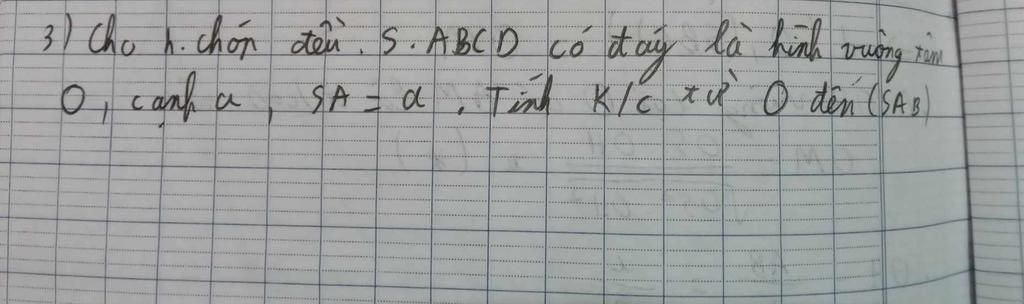 3) Cho h. chóp đều. S.ABCD có đáy là hình vuông tâm
O, cạnh a, SA = a. Tính K/c từ O đến (SAB)